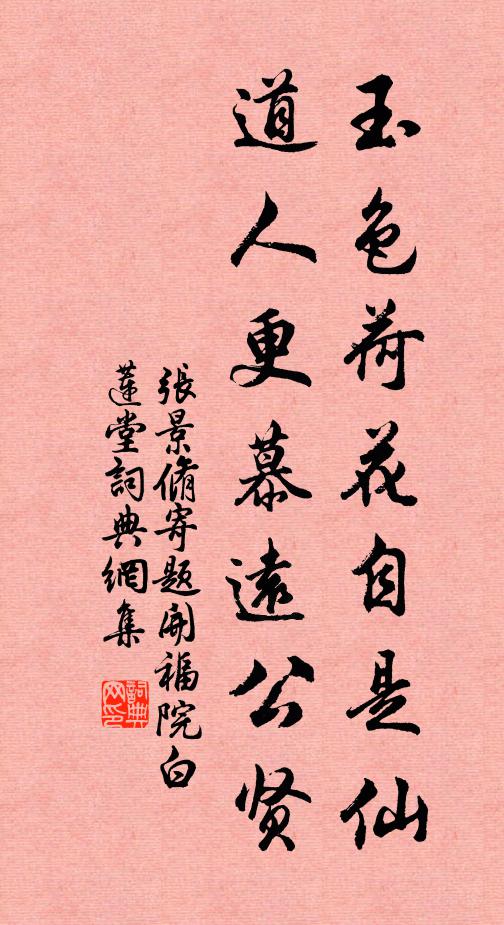 玉色荷花自是仙
道人更慕遠公贤
張景脩寄題開福院白
蓮堂詞典網集
詞典网印